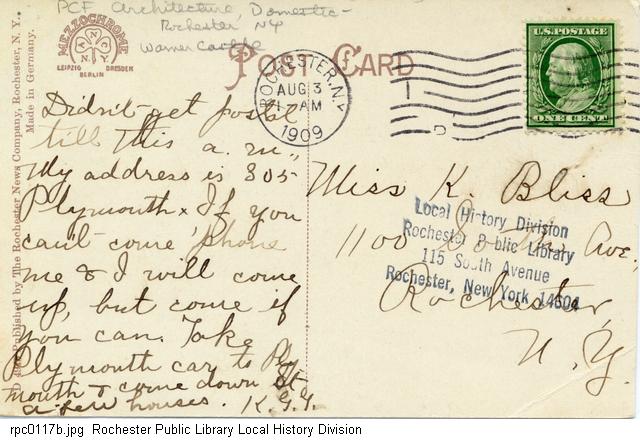 PCF Architecture, Domestic-
Rochester, NY
Warner Castle
POST CARD
MEZZOCHROME
A N C Y
LEIPZIG DRESDEN
BERLIN
ROCHESTER, N.Y.
AUG 3
AM
1909
U.S. POSTAGE
ONE CENT
Published by The Rochester News Company, Rochester, N. Y.
Made in Germany.
Didn't get postal
till this a.m.
My address is 805
Plymouth. If you
can't come 'phone
me & I will come
up, but come if
you can. Take
Plymouth car to Ply
mouth & come down St
a few houses. K.G.G.
Miss K. Bliss
1100 South Ave.
Rochester,
N.Y.
Local History Division
Rochester Public Library
115 South Avenue
Rochester, New York 14604
rpc0117b.jpg Rochester Public Library Local History Division